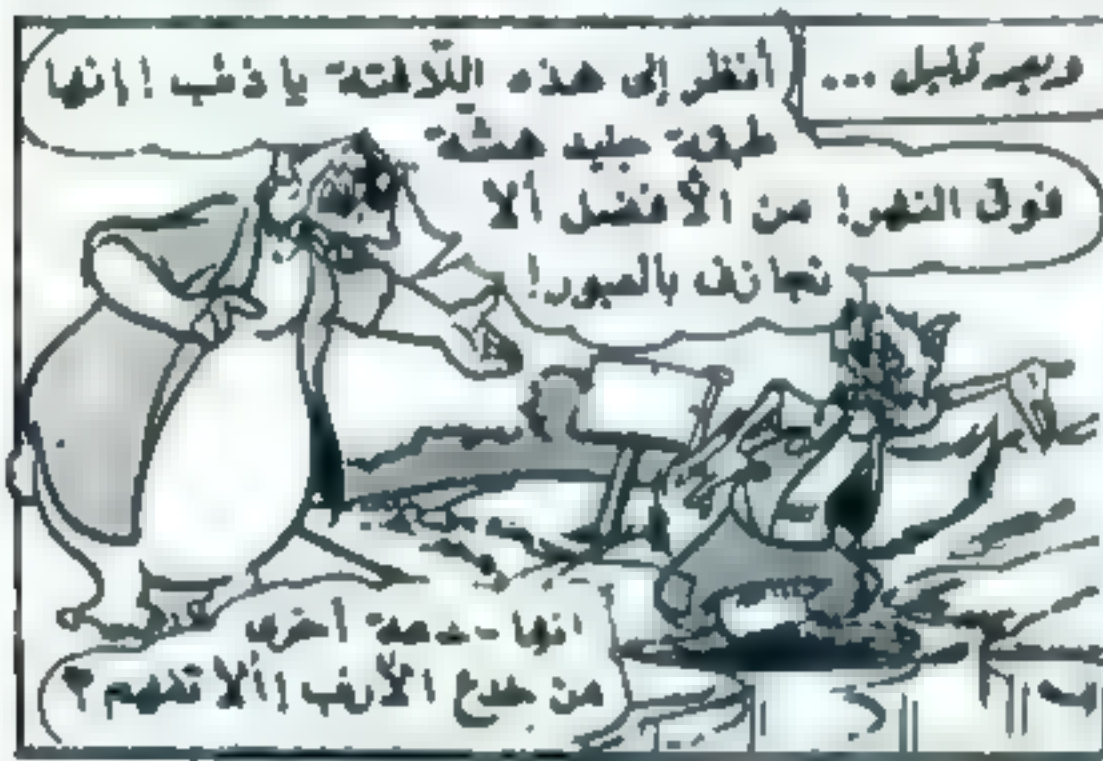 وبعد قليل ...
انظر إلى هذه اللّافتة يا ذئب ! إنها
طبقة جليد هشّة
فوق النهر! من الأفضل ألا
تجازف بالعبور!
انها خدعة أخرى
من خدع الأرنب ! ألا تفهم ؟